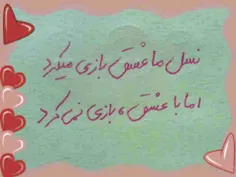 نسل ما عشق بازی میکرد
اما با عشق، بازی نمی کرد